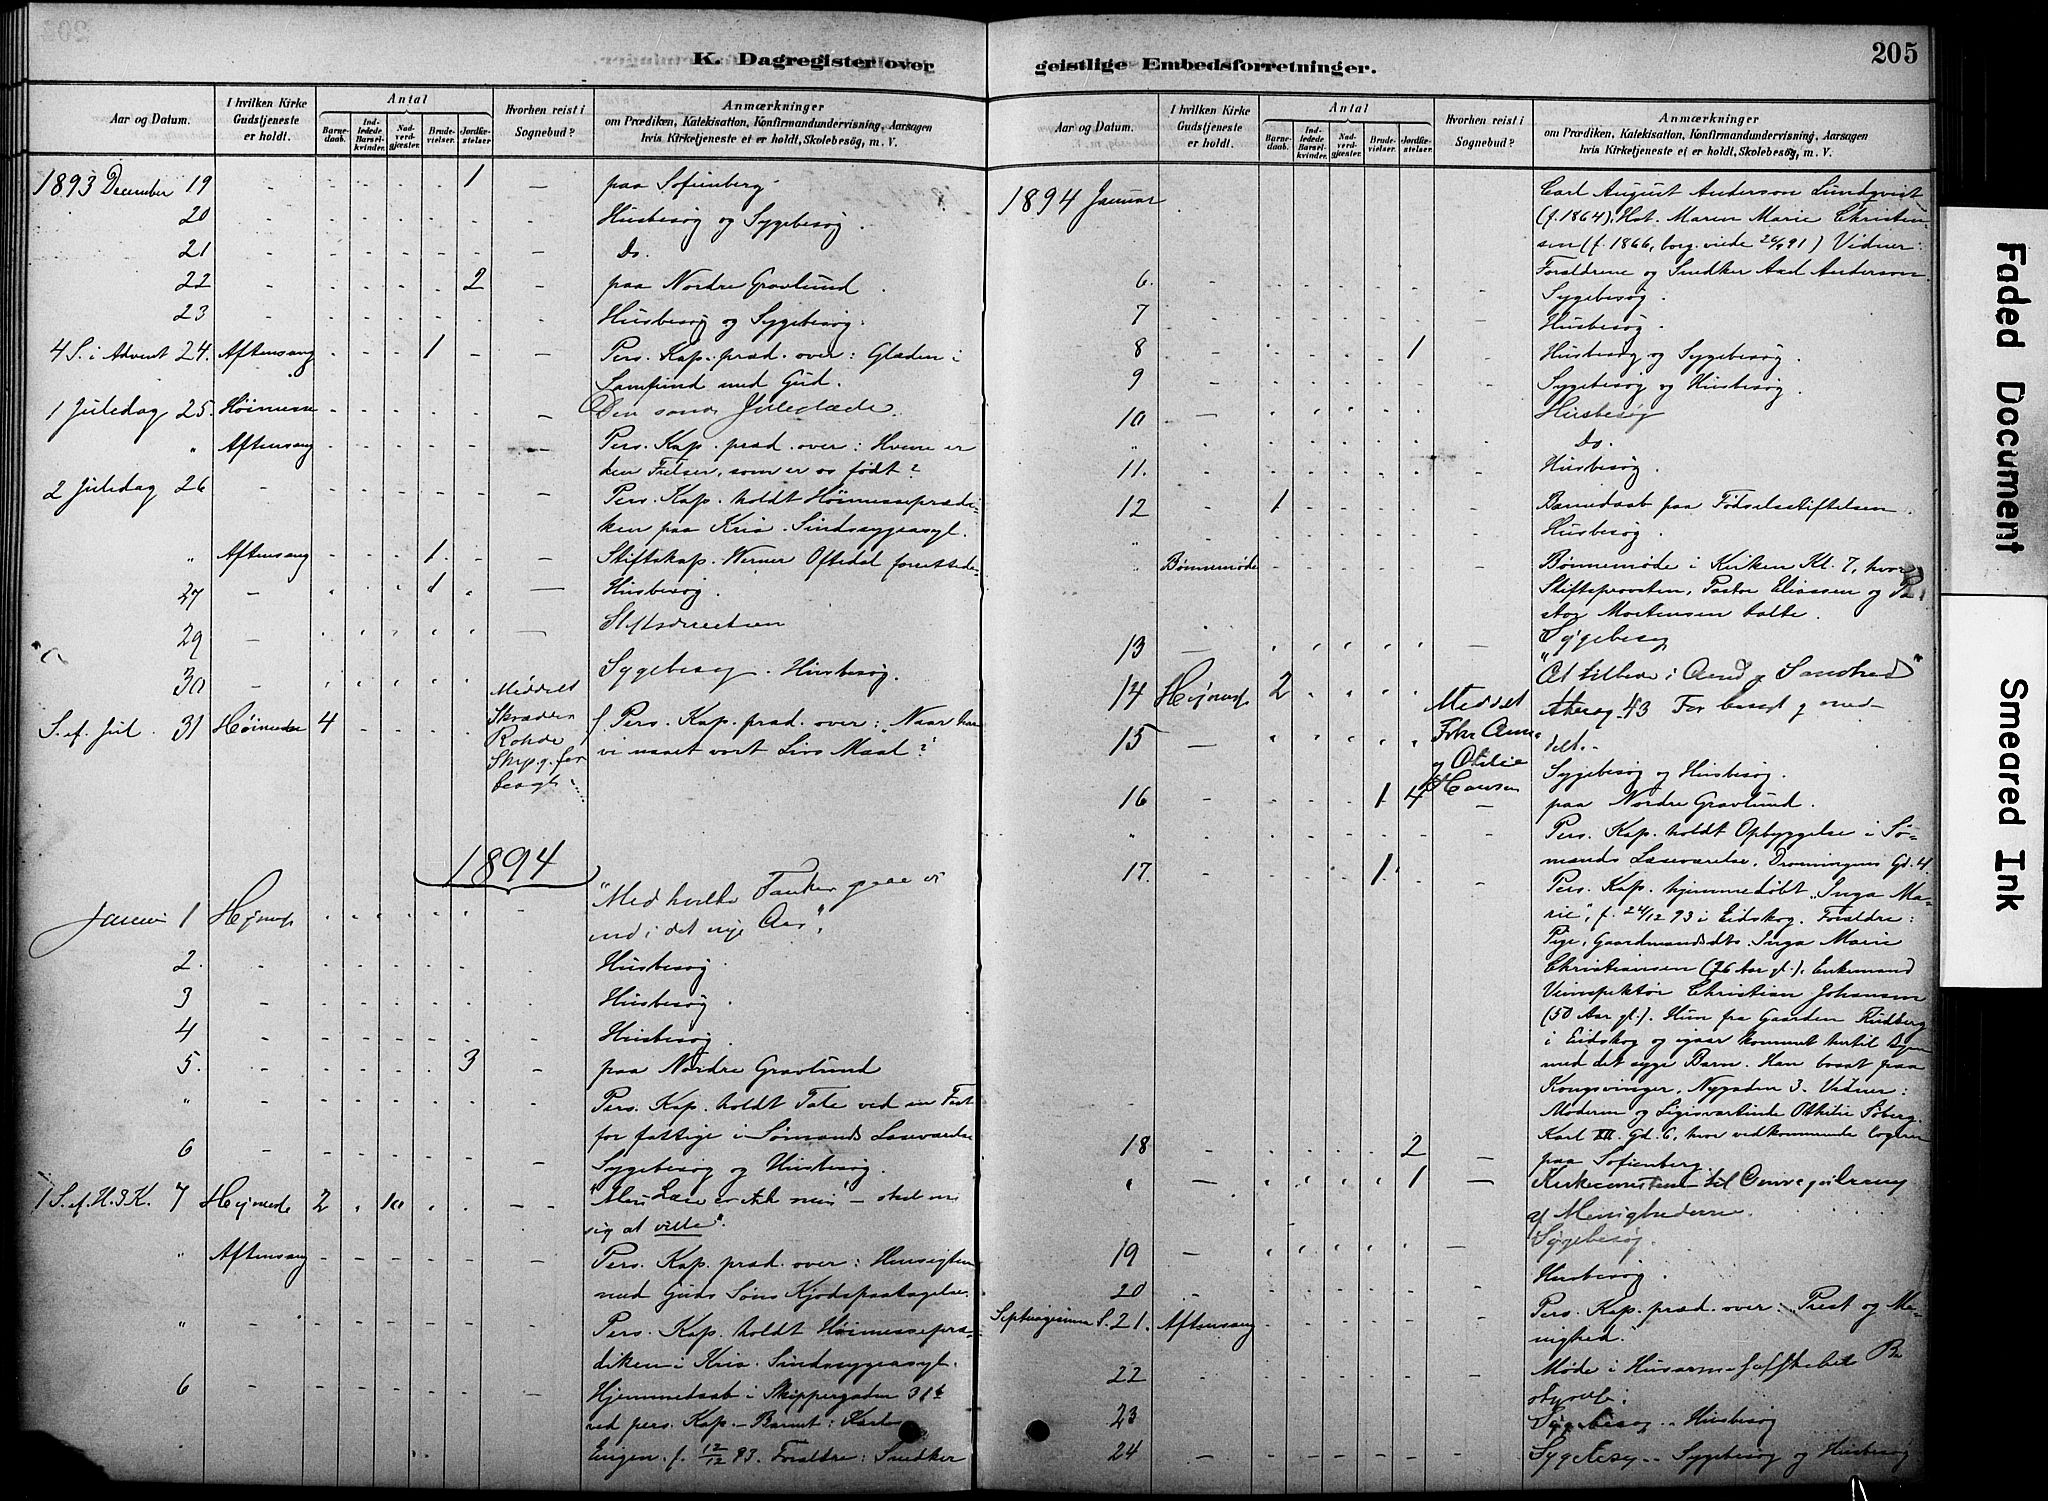 K. Dagregister over geistlige Embedsforretninger.
205
Aar og Datum.
I hvilken Kirke Gudstjeneste er holdt.
Antal
Barnedaab.
Indledede Barselkvinder.
Nadverdgjæster.
Brudevielser.
Jordfæstelser.
Hvorhen reist i Sognebud?
Anmærkninger
om Prædiken, Katekisation, Konfirmandundervisning, Aarsagen
hvis Kirketjeneste ei er holdt, Skolebesøg, m. V.
1893 December 19 - - - - - 1 - paa Sofienberg
20 Husbesøg og Sygebesøg.
21 Do.
22 2 paa Nordre Gravlund
23 Husbesøg og Sygebesøg.
4 S. i Advent 24. Aftensang 1 Pers. Kap. præd. over: Glæden i
Samfund med Gud.
1 Juledag 25. Høimesse Den sande Juleglæde.
" Aftensang Pers. Kap. præd. over: Hvem er
den Frelser, som er os født?
2 Juledag 26 Pers. Kap. holdt Høimesseprædi-
ken paa Kria. Sindssygeasyl.
" Aftensang 1. Stiftskap. Werner Oftedal forrettede
27 1 Husbesøg.
29 Stiftsdirectien
30 Sygebesøg. Husbesøg.
S. ef. Jul. 31 Høimesse 4 Meddelt
Skrædder
Rohde
Pers. Kap. præd. over: Naar har
vi naaet vort Livs Maal?
1894
Januar 1 Højmess "Med hvilke Tanker gaae vi
ind i det nye Aar".
2. Husbesøg
3 Husbesøg.
4 Husbesøg.
5. 3 paa Nordre Gravlund
" Pers. Kap. holdt Tale ved en Fest
for fattige i Sømands Læseværelse
6 Sygebesøg og Husbesøg.
1 S. ef. H. 3 K. 7 Højmesse 2 10 "Min Lære er ikke min" -
sig at ville".
" Aftensang Pers. Kap. præd. over: Hensigten
med Guds Søns Kjødspaatagelse.
" Pers. Kap. holdt Høimessepræ-
diken i Kria. Sindssygeasyl.
6 Hjemmedaab i Skippergaden 31 b
ved pers. Kap. - Barnet: Karl
Eugen. f. 12/12 93. Forældre: Snedker
Aar og Datum.
I hvilken Kirke Gudstjeneste er holdt.
Antal
Barnedaab.
Indledede Barselkvinder.
Nadverdgjæster.
Brudevielser.
Jordfæstelser.
Hvorhen reist i Sognebud?
Anmærkninger
om Prædiken, Katekisation, Konfirmandundervisning, Aarsagen
hvis Kirketjeneste ei er holdt, Skolebesøg, m. V.
1894 Januar Carl August Anderson Lundqvist
(f. 1864), Hst. Maren Marie Christen-
sen (f. 1866, borg. viede 91) Vidner:
Forældrene og Snedker Axel Anderson
6. Sygebesøg.
7 Husbesøg.
8 1 Husbesøg og Sygebesøg.
9 Sygebesøg og Husbesøg.
10 Husbesøg
" Do.
11. Husbesøg.
12 1 Barnedaab paa Fødselsstiftelsen.
" Husbesøg.
" Bønnemøde Bønnemøde i Kirken Kl. 7, hvor
Stiftsprovsten, Pastor Eliassen og Pa-
stor Mortensen talte.
13 Sygebesøg
14 Højmess 2 "At tilbede i Aand og Sandhed"
15 Meddelt
Frkn
og Otilie
Hansen
Akersg. 43
delt.
Sygebesøg og Husbesøg.
16 1 4 paa Nordre Gravlund.
" Pers. Kap. holdt Opbyggelse i Sø-
mands Læseværelse, Dronningens Gd. 4.
17. 1 Pers. Kap. hjemmedøbt "Inga Ma-
rie", f. 24/12 93 i Eidskog. Forældre:
Pige, Gaardmandsdtr. Inga Marie
Christiansen (26 Aar gl.), Enkemand
Veiinspektør Christian Johansen
(50 Aar gl.). Hun fra Gaarden Rudberg
i Eidskog og igaar kommet hertil Byen
med det syge Barn. Han bosat paa
Kongsvinger, Nygaden 3. Vidner:
Moderen og Ligisværtinde Othilie Söberg,
Karl XII Gd. 6, hvor vedkommende logerer
18 2 paa Sofienberg.
" 1
af Menighederne.
19 Sygebesøg.
20 Husbesøg.
Septuagesima S. 21. Aftensang Pers. Kap. præd. over: "Prest og Me-
nighed.
22 Møde i
23 Sygebesøg. Husbesøg
24 Sygebesøg. Sygebesøg og Husbesøg
Faded Document
Smeared Ink